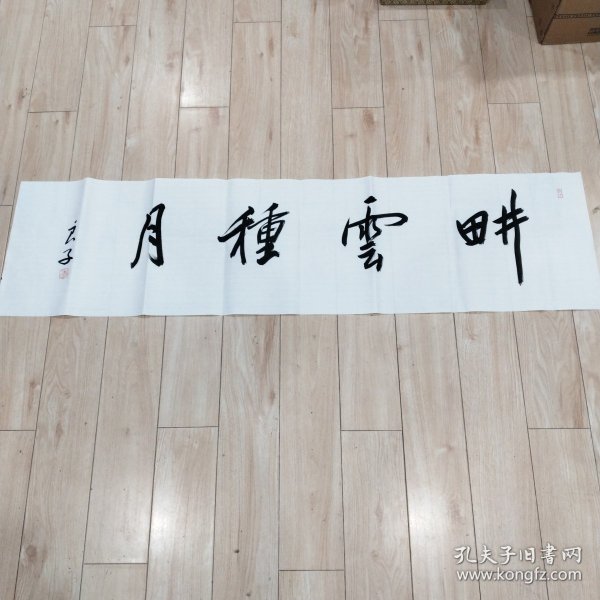 畊雲種月
孔夫子旧書网
www.kongfz.com